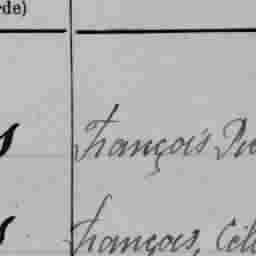 rde)
François
François, Cél